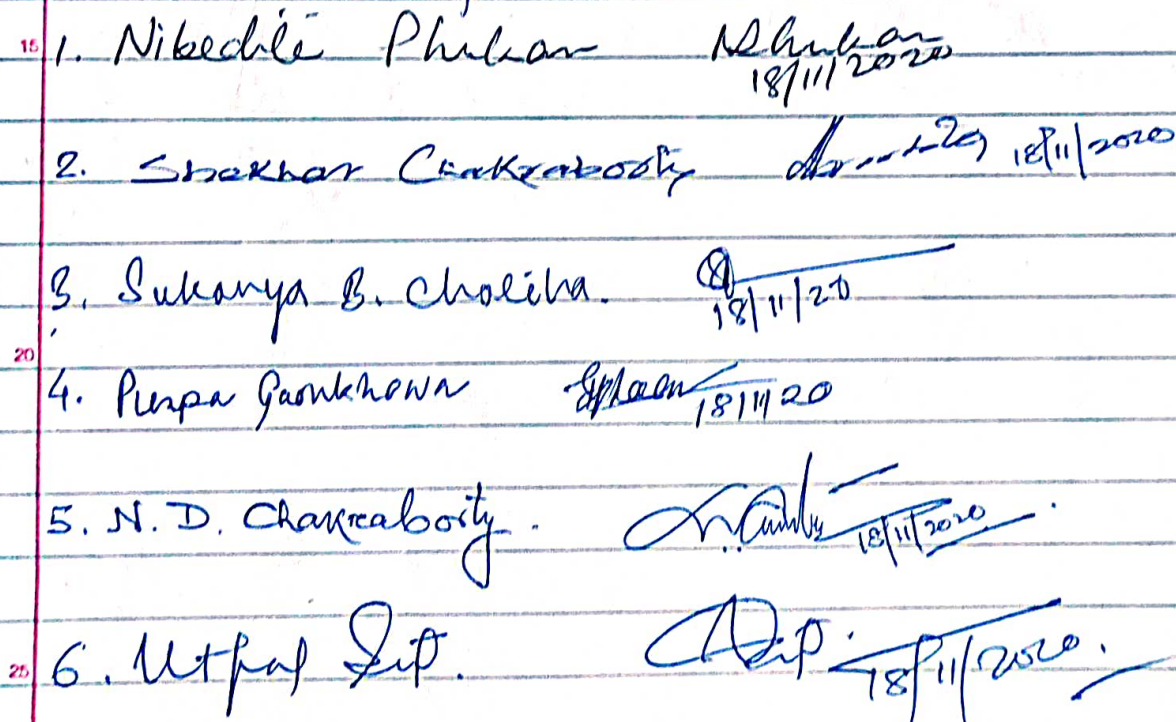 15
1. Nibedita Phukan NPhukan
18/11/2020
2. Shekhar Chakraborty 18/11/2020
3. Sukanya B. Choliha.
18/11/20
20
4. Puspa Gaonkhowa
18/11/20
5. N. D. Chakraborty.
18/11/2020
25 6. Utpal Dip.
18/11/2020.